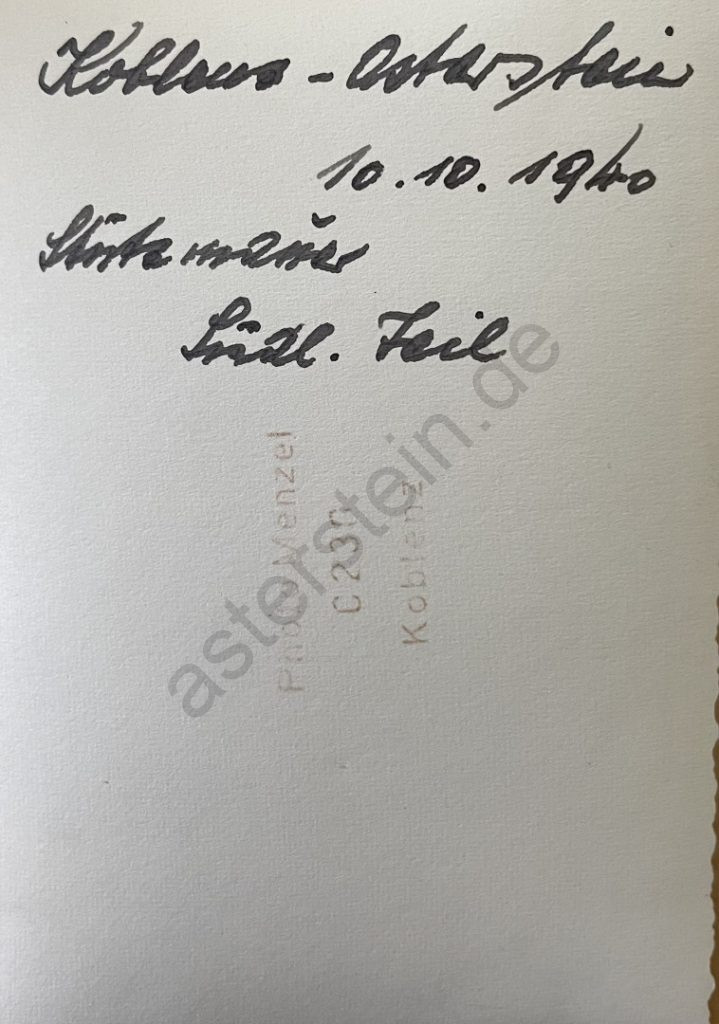 Koblenz - Asterstein
10.10.1940
Stützmauer
Südl. Teil
Photo Menzel
C 230
Koblenz
asterstein.de